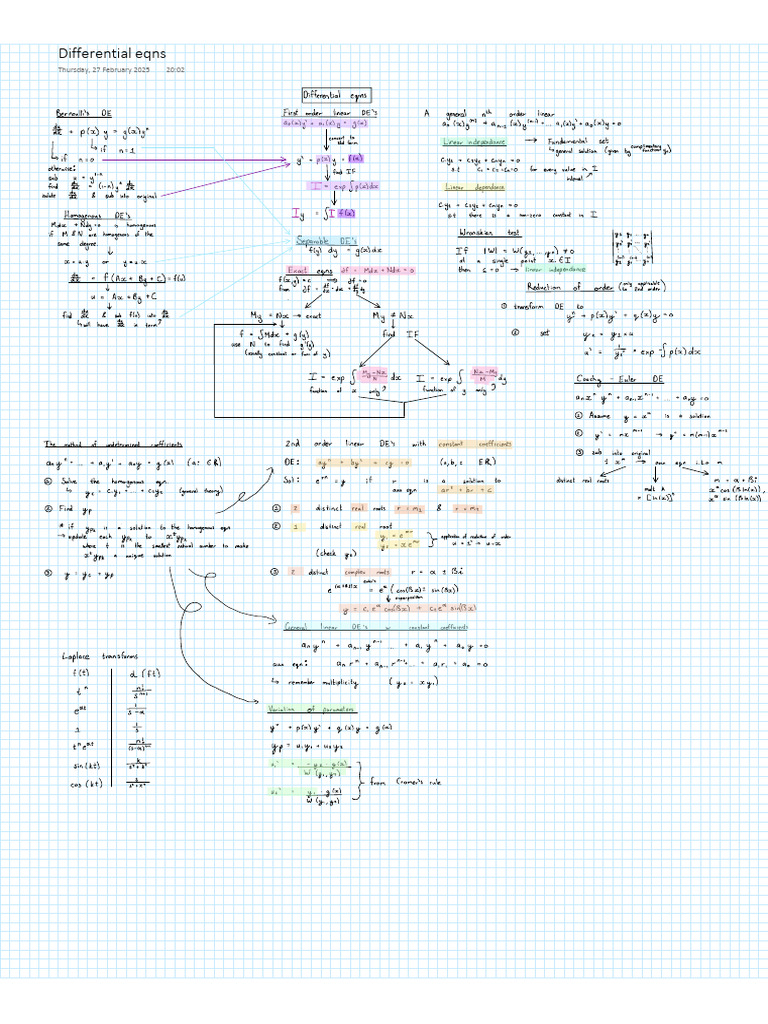 Differential eqns
Thursday, 27 February 2025 20:02
Differential eqns
Bernoulli's DE
dy/dx + p(x) y = g(x)yⁿ
↳ if n=1
↳ if n=0
otherwise:
sub u = y¹⁻ⁿ
find du/dx = (1-n)y⁻ⁿ dy/dx
isolate dy/dx & sub into original
Homogenous DE's
Mdx + Ndy = 0 is homogenous
if M & N are homogenous of the
same degree.
x = uy or y = ux
dy/dx = f(Ax + By + C) = f(u)
u = Ax + By + C
find dy/dx & sub f(u) into dy/dx
↳ will have du/dx u term?
First order linear DE's
a₀(x)y' + a₁(x)y = g(x)
convert to
std form
y' + p(x)y = f(x)
find IF
I = exp ∫p(x)dx
Iy = ∫I f(x)
Separable DE's
f(y) dy = g(x)dx
Exact eqns df = Mdx + Ndx = 0
f(x,y) = c ⟹ df = 0
My = Nx → exact
My ≠ Nx
find IF
f = ∫Mdx + g(y)
use N to find g'(y)
(usually constant or fcn of y)
I = exp ∫ (My-Nx)/N dx
function of x only?
I = exp ∫ (Nx-My)/M dy
function of y only?
A general nth order linear
Linear independence → Fundamental set
↳ general solution (given by complementary function yc)
c₁y₁ + c₂y₂ + cₙyₙ = 0
s.t c₁ = c₂ = cₙ = 0 for every value in I
interval
Linear dependance
c₁y₁ + c₂y₂ + cₙyₙ = 0
s.t there is a non-zero constant in I
Wronskian test
If |W| = W(y₁, ... yₙ) ≠ 0
at a single point x ∈ I
then → linear independence
Reduction of order (only applicable to 2nd order)
① transform DE to
y'' + p(x)y' + q(x)y = 0
② set y₂ = y₁ × u
u' = 1/y₁² × exp ∫p(x)dx
Cauchy - Euler DE
aₙxⁿ yⁿ + aₙ₋₁ xⁿ⁻¹ + ... + a₀y = 0
① Assume y = xᵐ is a solution
② y' = mxᵐ⁻¹ → y'' = m(m-1)xᵐ⁻²
③ sub into original
aux eqn i.t.o m
distinct real roots
mult k
m = α + βi
xᵅcos(βln(x)),
xᵅ sin(βln(x))
The method of undetermined coefficients
aₙyⁿ + ... + a₁y' + a₀y = g(x) (aᵢ ∈ R)
① Solve the homogenous eqn
↳ yc = c₁y₁ + ... + cₙyₙ (general theory)
② Find yp
* if yp₂ is a solution to the homogenous eqn
→ update each yp₂ to xᵗyp₂
where t is the smallest natural number to make
xᵗyp₂ a unique solution
③ y = yc + yp
2nd order linear DE's with constant coefficients
DE: ay'' + by' + cy = 0 (a, b, c ∈ R)
Sol: eʳˣ = y if r is a solution to
aux eqn ar² + br + c
① 2 distinct real roots r = m₁ & r = m₂
② 1 distinct real root
y₁ = eᵐˣ
y₂ = xeᵐˣ
application of reduction of order
(check y₂)
③ 2 distinct complex roots r = α ± βi
euler's
superposition
y = c₁eᵅ cos(βx) + c₂eᵅ sin(βx)
General linear DE's w constant coefficients
aₙyⁿ + aₙ₋₁yⁿ⁻¹ ... + a₁y' + a₀y = 0
aux eqn: aₙrⁿ + aₙ₋₁rⁿ⁻¹ ... + a₁r₁ + a₀ = 0
↳ remember multiplicity (y₂ = xy₁)
Variation of parameters
y'' + p(x)y' + q(x)y = g(x)
yp = u₁y₁ + u₂y₂
u₁' = -y₂ g(x) / W(y₁, y₂)
u₂' = y₁ · g(x) / W(y₁, y₂)
from Cramer's rule
Laplace transforms
f(t) L(ft)
tⁿ n!/sⁿ⁺¹
eᵃᵗ 1/(s-a)
1 1/s
tⁿeᵃᵗ n!/(s-a)ⁿ⁺¹
sin(kt) k/(s²+k²)
cos(kt) s/(s²+k²)